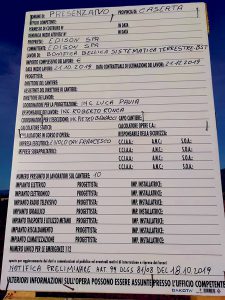 COMUNE DI PRESENZANO PROVINCIA DI CASERTA
UFFICIO COMPETENTE: IN DATA
TITOLO EDILIZIO: IN DATA
COMMITTENTE: EDISON SPA
EDISON SPA
LAVORI DI BONIFICA BELLICA SISTEMATICA TERRESTRE-BST
IMPORTO COMPLESSIVO DI €
DATA INIZIO LAVORI 21.10.2019 DATA CONTRATTUALE DI ULTIMAZIONE DEI LAVORI 21.12.2019
PROGETTISTA:
DIRETTORE DEL CANTIERE:
ASSISTENTE DEL CANTIERE:
DIRETTORE DEI LAVORI:
COORDINATORE PER LA PROGETTAZIONE: ING. LUCA PAVIA
ING. ROBERTO RONCA
COORDINATORE PER L'ESECUZIONE: CAPO CANTIERE:
CALCOLATORE STATICO: CALCOLATORE OPERE C.A.:
COLLAUDATORE IN CORSO D'OPERA: RESPONSABILE DELLA SICUREZZA:
IMPRESA ESECUTRICE: C.C.I.A.A.: A.N.C.: S.O.A.:
IMPRESE SUBAPPALTATRICI: C.C.I.A.A.: A.N.C.: S.O.A.:
C.C.I.A.A.: A.N.C.: S.O.A.:
C.C.I.A.A.: A.N.C.: S.O.A.:
C.C.I.A.A.: A.N.C.: S.O.A.:
NUMERO PRESUNTO DI LAVORATORI SUL CANTIERE: 10
IMPIANTO ELETTRICO PROGETTISTA: IMP. INSTALLATRICE:
IMPIANTO ELETTRONICO PROGETTISTA: IMP. INSTALLATRICE:
IMPIANTO RADIO TELEVISIVO PROGETTISTA: IMP. INSTALLATRICE:
IMPIANTO IDRAULICO PROGETTISTA: IMP. INSTALLATRICE:
IMPIANTO TRASPORTO E UTILIZZO METANO PROGETTISTA: IMP. INSTALLATRICE:
IMPIANTO RISCALDAMENTO PROGETTISTA: IMP. INSTALLATRICE:
IMPIANTO CLIMATIZZAZIONE PROGETTISTA: IMP. INSTALLATRICE:
NUMERO UNICO PER LE EMERGENZE 112
NOTIFICA PRELIMINARE ART. 99 DLGS 81/08 DEL 18.10.2019
ULTERIORI INFORMAZIONI SULL'OPERA POSSONO ESSERE ASSUNTE PRESSO L'UFFICIO COMPETENTE
DAKOTA